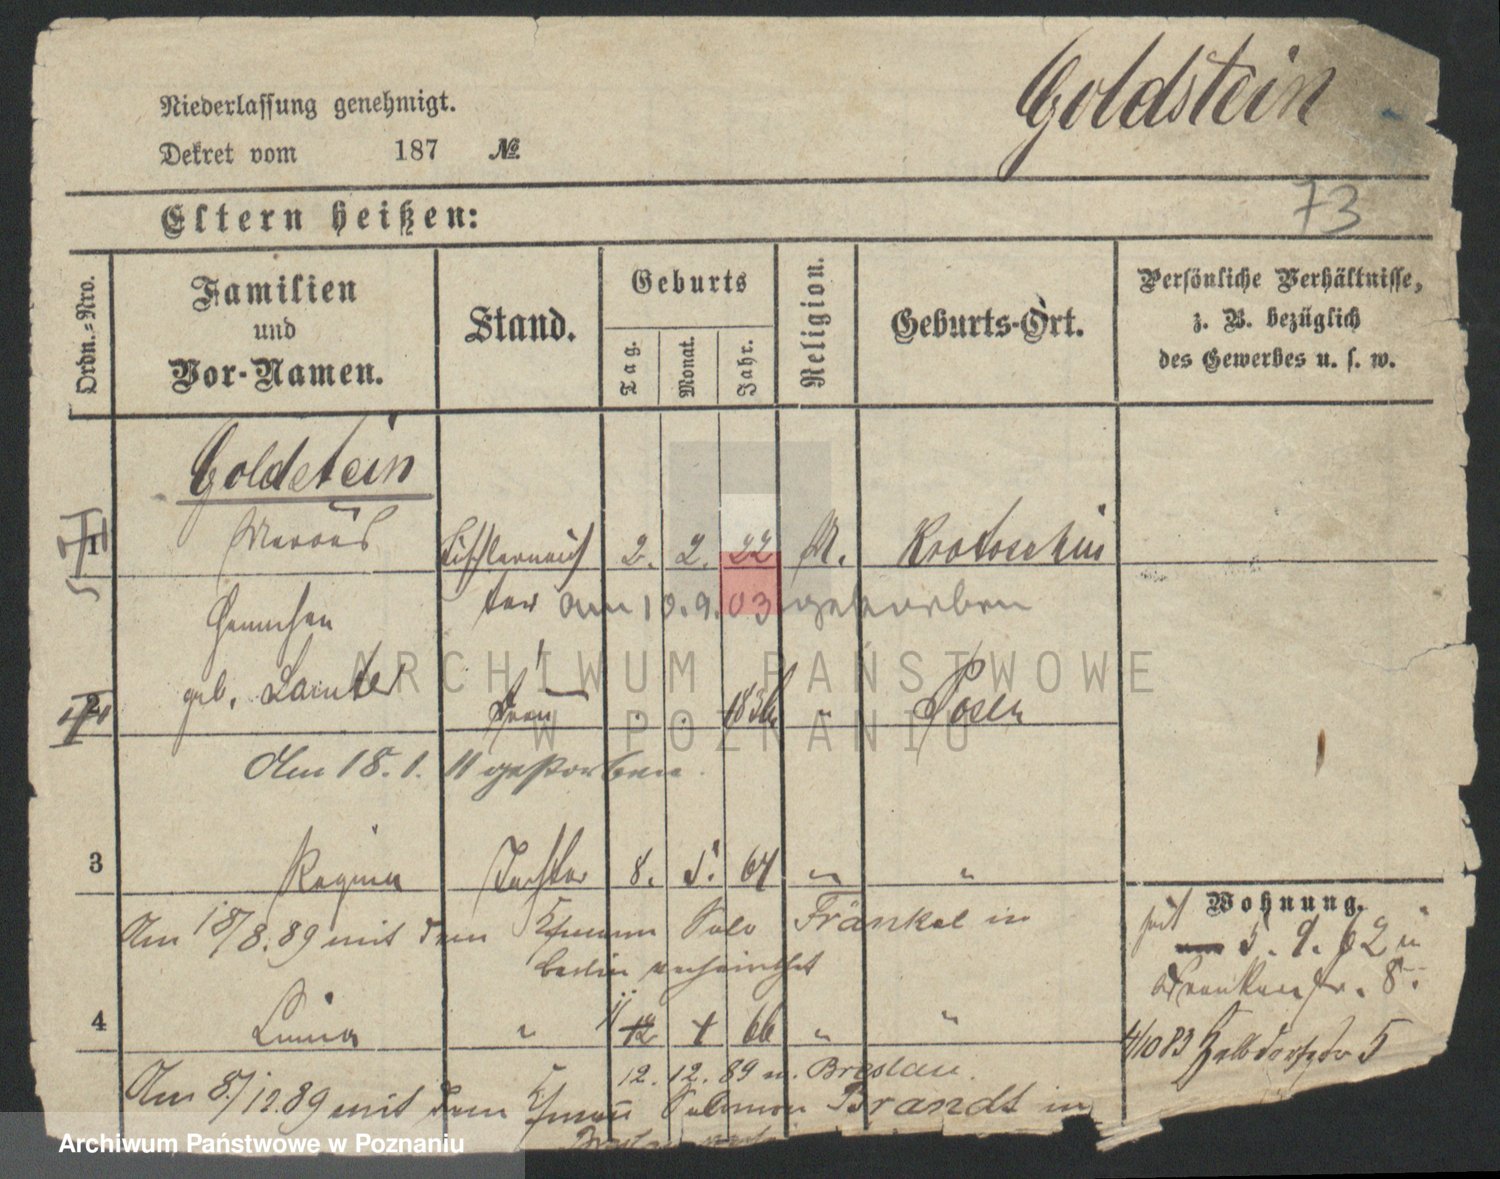 Goldstein
Niederlassung genehmigt.
Dekret vom 187 №
73
Eltern heißen:
Ordn.-Nro.
Familien
und
Vor-Namen.
Stand.
Geburts
Tag.
Monat.
Jahr.
Religion.
Geburts-Ort.
Persönliche Verhältnisse,
z. B. bezüglich
des Gewerbes u. s. w.
Goldstein
1 Marcus 2. 2. 22 M. Krotoschin
ter am 10.9.03 gestorben
geb.
2 Frau " Posen
Am 18. 1. 11 gestorben.
3 Regina Tochter 8. 5. "  "
Wohnung.
Am 18/8.89 mit dem Kfmann Salo Fränkel in
Berlin verheirathet
5. 9. 62 in
8.
4 " 11 12 66 " "
4/10 83 5
12. 12. 89 n. Breslau.
Am 8/12.89 mit dem Kfmann Salomon Brandt in
Breslau
ARCHIWUM PAŃSTWOWE
W POZNANIU
Archiwum Państwowe w Poznaniu